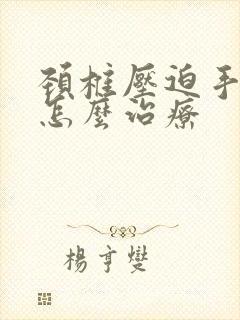 頸椎壓迫手
怎麼治療
楊亨燮